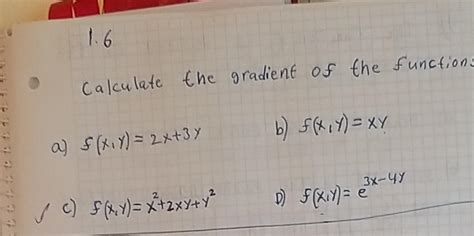 1.6
Calculate the gradient of the functions
a) f(x,y) = 2x+3y
b) f(x,y) = xy
c) f(x,y) = x²+2xy+y²
D) f(x,y) = e^{3x-4y}